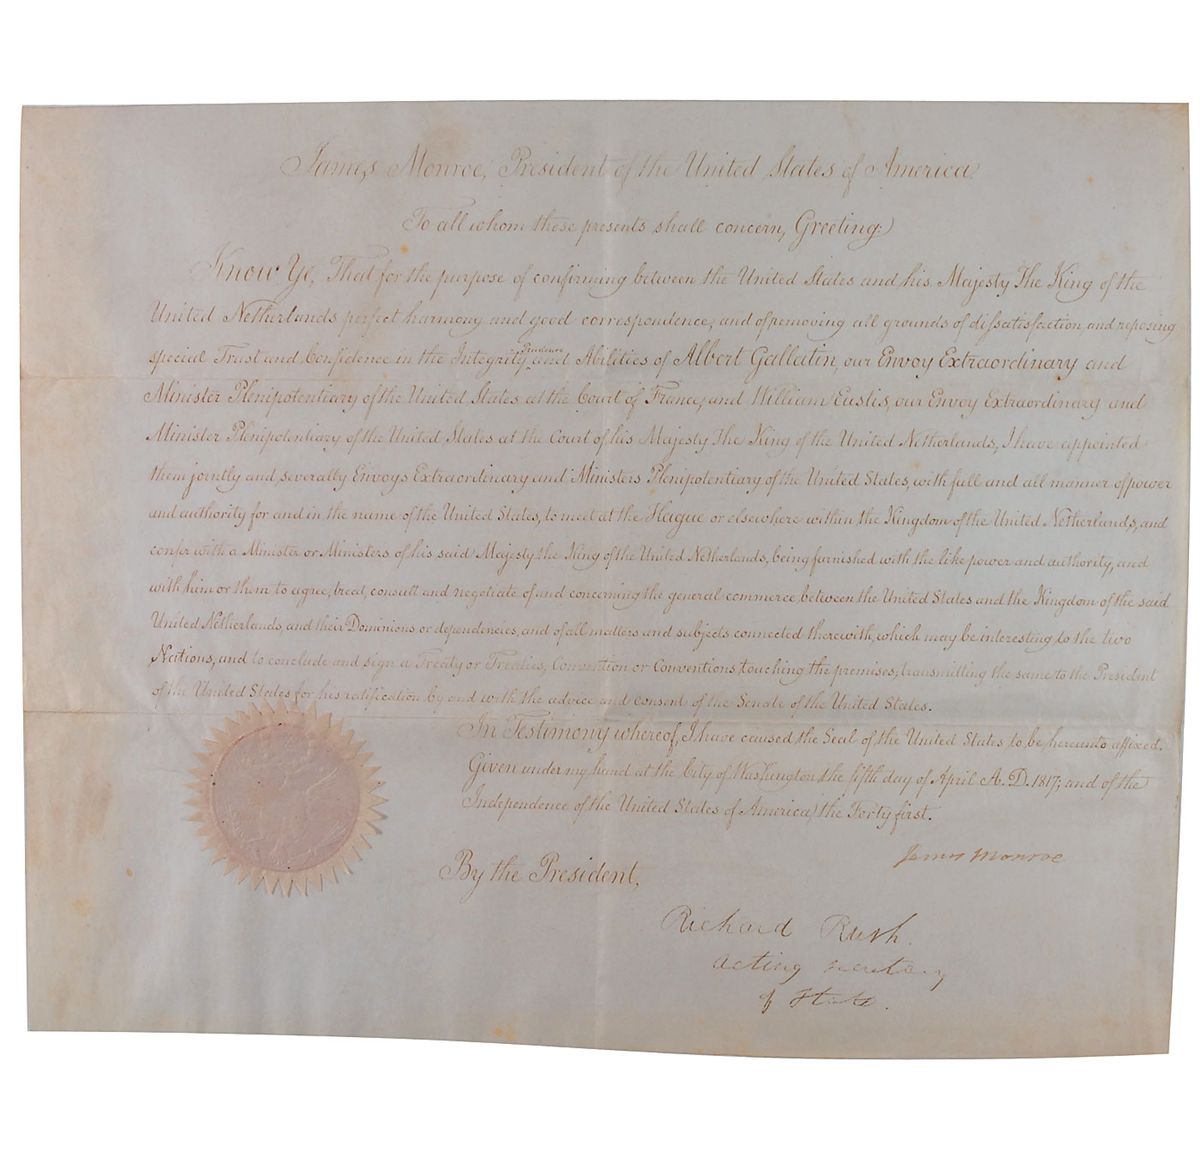 James Monroe, President of the United States of America.
To all whom these presents shall concern, Greeting:
Know Ye, That for the purpose of confirming between the United States and his Majesty The King of the
United Netherlands perfect harmony and good correspondence, and of removing all grounds of dissatisfaction and reposing
Prudence
special Trust and Confidence in the Integrity, and Abilities of Albert Gallatin, our Envoy Extraordinary and
Minister Plenipotentiary of the United States at the Court of France, and William Eustis, our Envoy Extraordinary and
Minister Plenipotentiary of the United States at the Court of his Majesty The King of the United Netherlands, I have appointed
them jointly and severally Envoys Extraordinary and Ministers Plenipotentiary of the United States, with full and all manner of power
and authority for and in the name of the United States, to meet at the Hague or elsewhere within the Kingdom of the United Netherlands, and
confer with a Minister or Ministers of his said Majesty the King of the United Netherlands, being furnished with the like power and authority, and
with him or them to agree, treat, consult and negotiate of and concerning the general commerce between the United States and the Kingdom of the said
United Netherlands, and their Dominions or dependencies, and of all matters and subjects connected therewith, which may be interesting to the two
Nations, and to conclude and sign a Treaty or Treaties, Convention or Conventions, touching the premises, transmitting the same to the President
of the United States for his ratification by and with the advice and consent of the Senate of the United States.
In Testimony whereof, I have caused the Seal of the United States to be hereunto affixed.
Given under my hand at the City of Washington the fifth day of April A. D. 1817; and of the
Independence of the United States of America, the Forty first.
James Monroe
By the President,
Richard Rush.
Acting Secretary
of State.